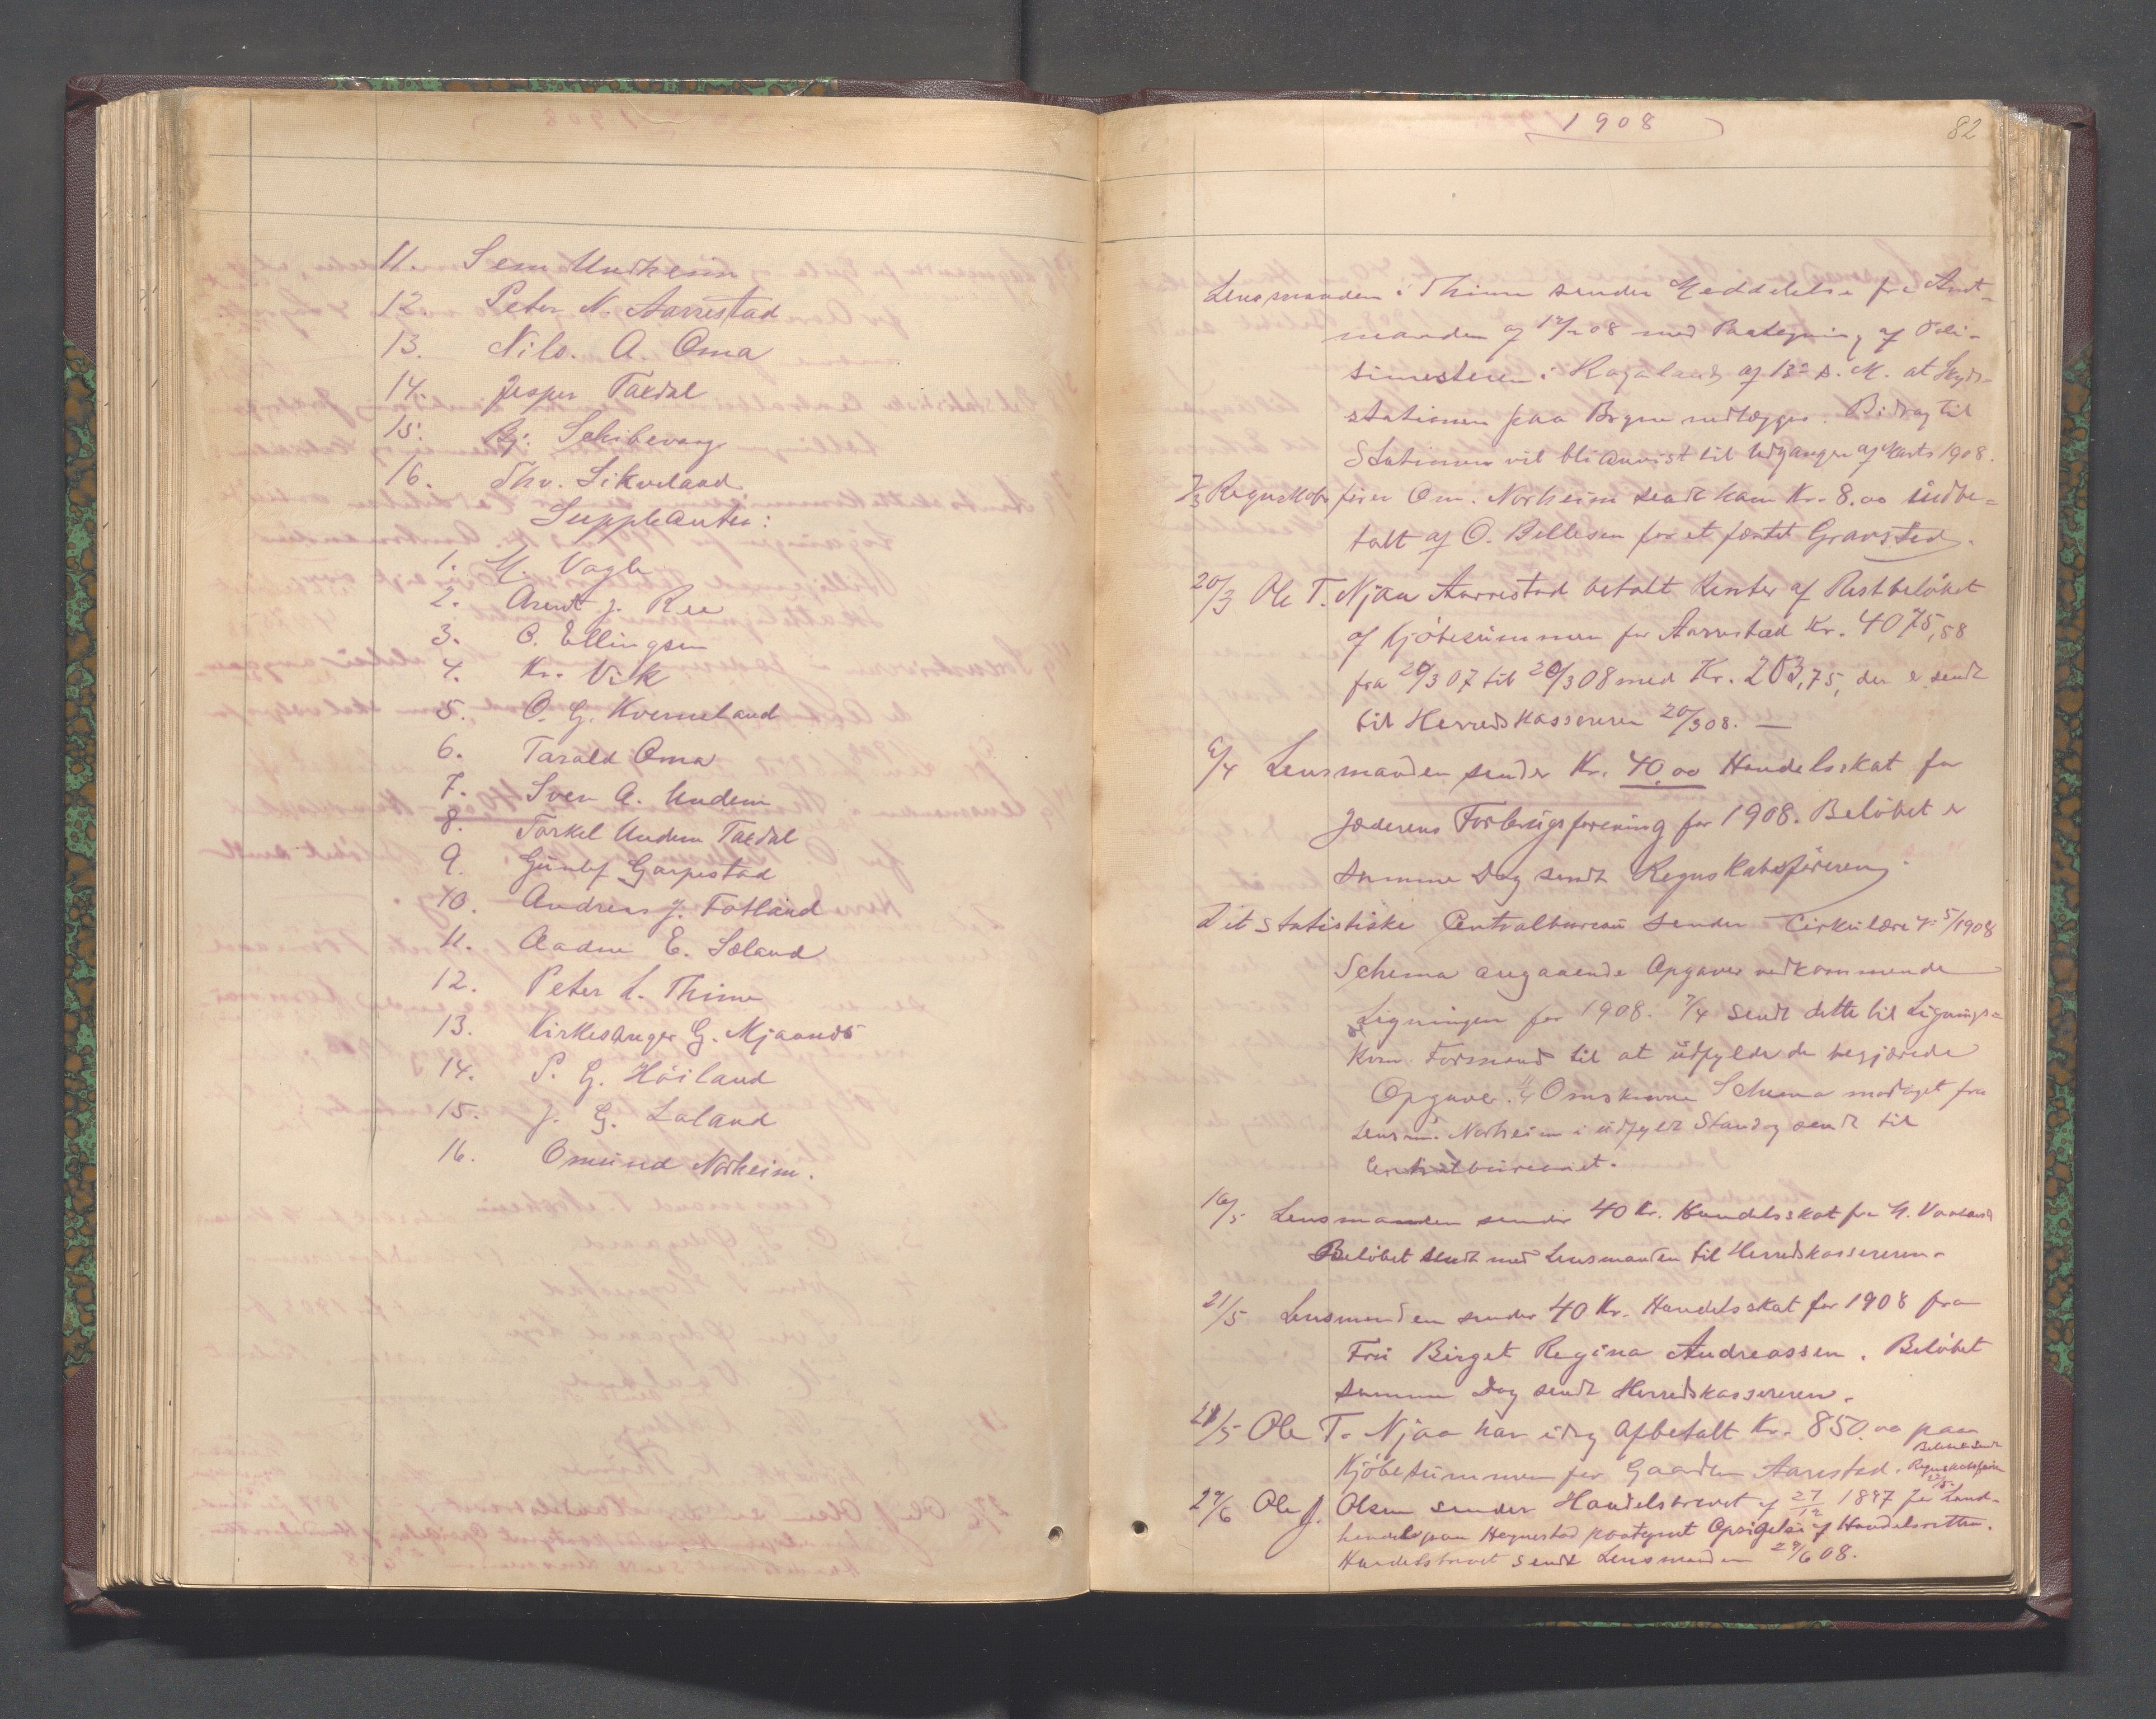 11. Sem Undheim
12. Peter N. Aarrestad
13. Nils. A. Oma
14. Jesper Taxdal
15. Bj. Schibevaag
16. Thv. Sikveland
Suppleanter:
1. M. Vagle
2. Arent J. Ree
3. O. Ellingsen
4. Kr. Vik
5. O. G. Kverneland
6. Tarald Oma
7. Sven A. Undem
8. Torkel Undem Taxdal
9. Gunlef Garpestad
10. Andreas J. Fotland
11. Aadne E. Sæland
12. Peter L. Thime
13. Kirkesanger G. Mjaands
14. P. G. Höiland
15. J. G. Laland
16. Omund Norheim.
1908
82
Lensmanden i Thime sender Meddelelse fra Amt-
manden af 12/2 08 med Paategning af Poli-
timesteren i Rogaland af 13de d. M. at Skyds-
stationen paa Bryne nedlægges. Bidrag til
Stationen vil bli anvist til Udgangen af Marts 1908.
7/3 Regnskabsfører Om. Norheim sendt ham Kr. 8.00 indbe-
talt af O. Bellesen for et fæstet Gravsted.
20/3 Ole T. Njaa Aarrestad betalt Renter af Restbeløbet
af Kjöbesummen for Aarrestad Kr. 4075,58
fra 20/3 07 til 20/3 08 med Kr. 203,75, der er sendt
til Herredskassereren 20/3 08. —
6/4 Lensmanden sender Kr. 40,00 Handelsskat for
Jæderens Forbrugsforening for 1908. Belöbet er
samme Dag sendt Regnskabsføreren.
Det statistiske Centralbureau sender Cirkulære No 5/1908
Schema angaaende Opgaver vedkommende
Ligningen for 1908. 7/4 sendt dette til Lignings-
kom. Formand til at udfylde de begjærede
Opgaver. Omskrevne Schema modtaget fra
Lensm. Norheim i udfyldt Stand og sendt til
Centralbureauet.
16/5 Lensmanden sender 40 Kr. Handelsskat fra M. Vaaland
Beløbet sendt med Lensmanden til Herredskassereren.
21/5 Lensmanden sender 40 Kr. Handelsskat for 1908 fra
Fru Birget Regina Andreassen. Belöbet
samme Dag sendt Herredskassereren.
21/5 Ole T. Njaa har idag afbetalt Kr. 850.00 paa
Kjöbesummen for Gaarden Aarrestad. Beløbet sendt
Regnskabsføren
29/6 Ole J. Olsen sender Handelsbrevet af 27/12 1897 for Land-
handel paa Hognestad paategnet Opsigelse af Handelsretten.
Handelsbrevet sendt Lensmanden 29/6 08.